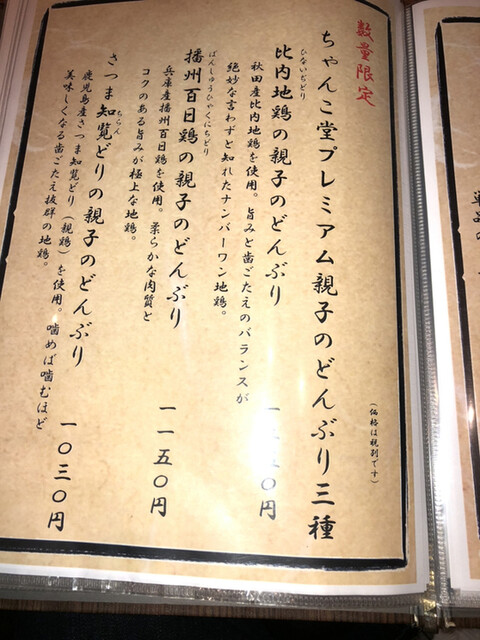 数量限定
ちゃんこ堂プレミアム親子のどんぶり三種
(価格は税別です)
ひないじどり
比内地鶏の親子のどんぶり
秋田産比内地鶏を使用。旨みと歯ごたえのバランスが
絶妙な言わずと知れたナンバーワン地鶏。
〇円
ばんしゅうひゃくにちどり
播州百日鶏の親子のどんぶり
兵庫産播州百日鶏を使用。柔らかな肉質と
コクのある旨みが極上な地鶏。
一一五〇円
ちらん
さつま知覧どりの親子のどんぶり
鹿児島産さつま知覧どり(親鶏)を使用。噛めば噛むほど
美味しくなる歯ごたえ抜群の地鶏。
一〇三〇円